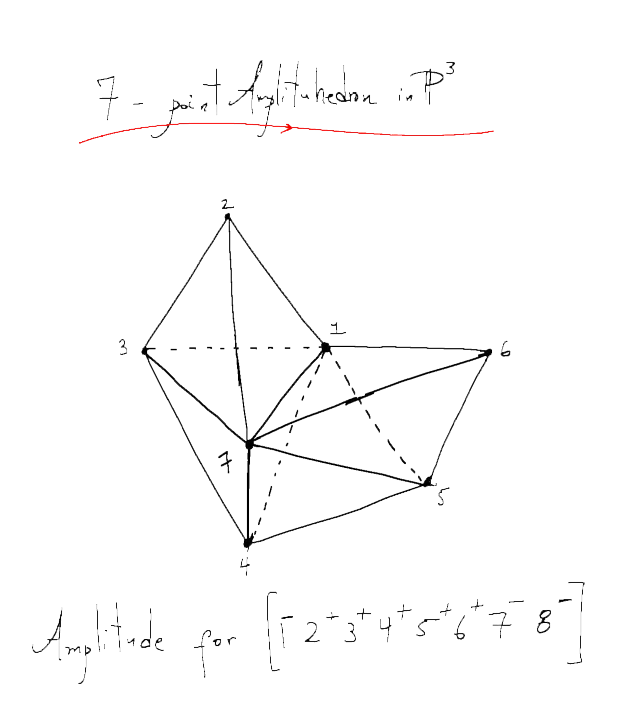 7 - point Amplituhedron in P³
2
1
3
6
7
5
4
Amplitude for [1⁻ 2⁺ 3⁺ 4⁺ 5⁺ 6⁺ 7⁻ 8⁻]